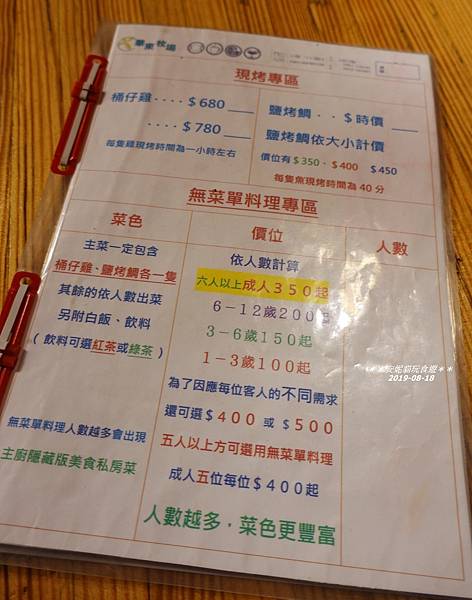 華東牧場
現烤專區
桶仔雞････$680
････$780
每隻雞現烤時間為一小時左右
鹽烤鯛 ･･$時價
鹽烤鯛依大小計價
價位有$350･$400 $450
每隻魚現烤時間為40分
無菜單料理專區
菜色
價位
人數
主菜一定包含
桶仔雞、鹽烤鯛各一隻
其餘的依人數出菜
另附白飯、飲料
( 飲料可選紅茶或綠茶 )
無菜單料理人數越多會出現
主廚隱藏版美食私房菜
依人數計算
六人以上成人350起
6-12歲200起
3-6歲150起
1-3歲100起
為了因應每位客人的不同需求
還可選$400 或 $500
五人以上方可選用無菜單料理
成人五位每位$400起
人數越多･菜色更豐富
2019-08-18